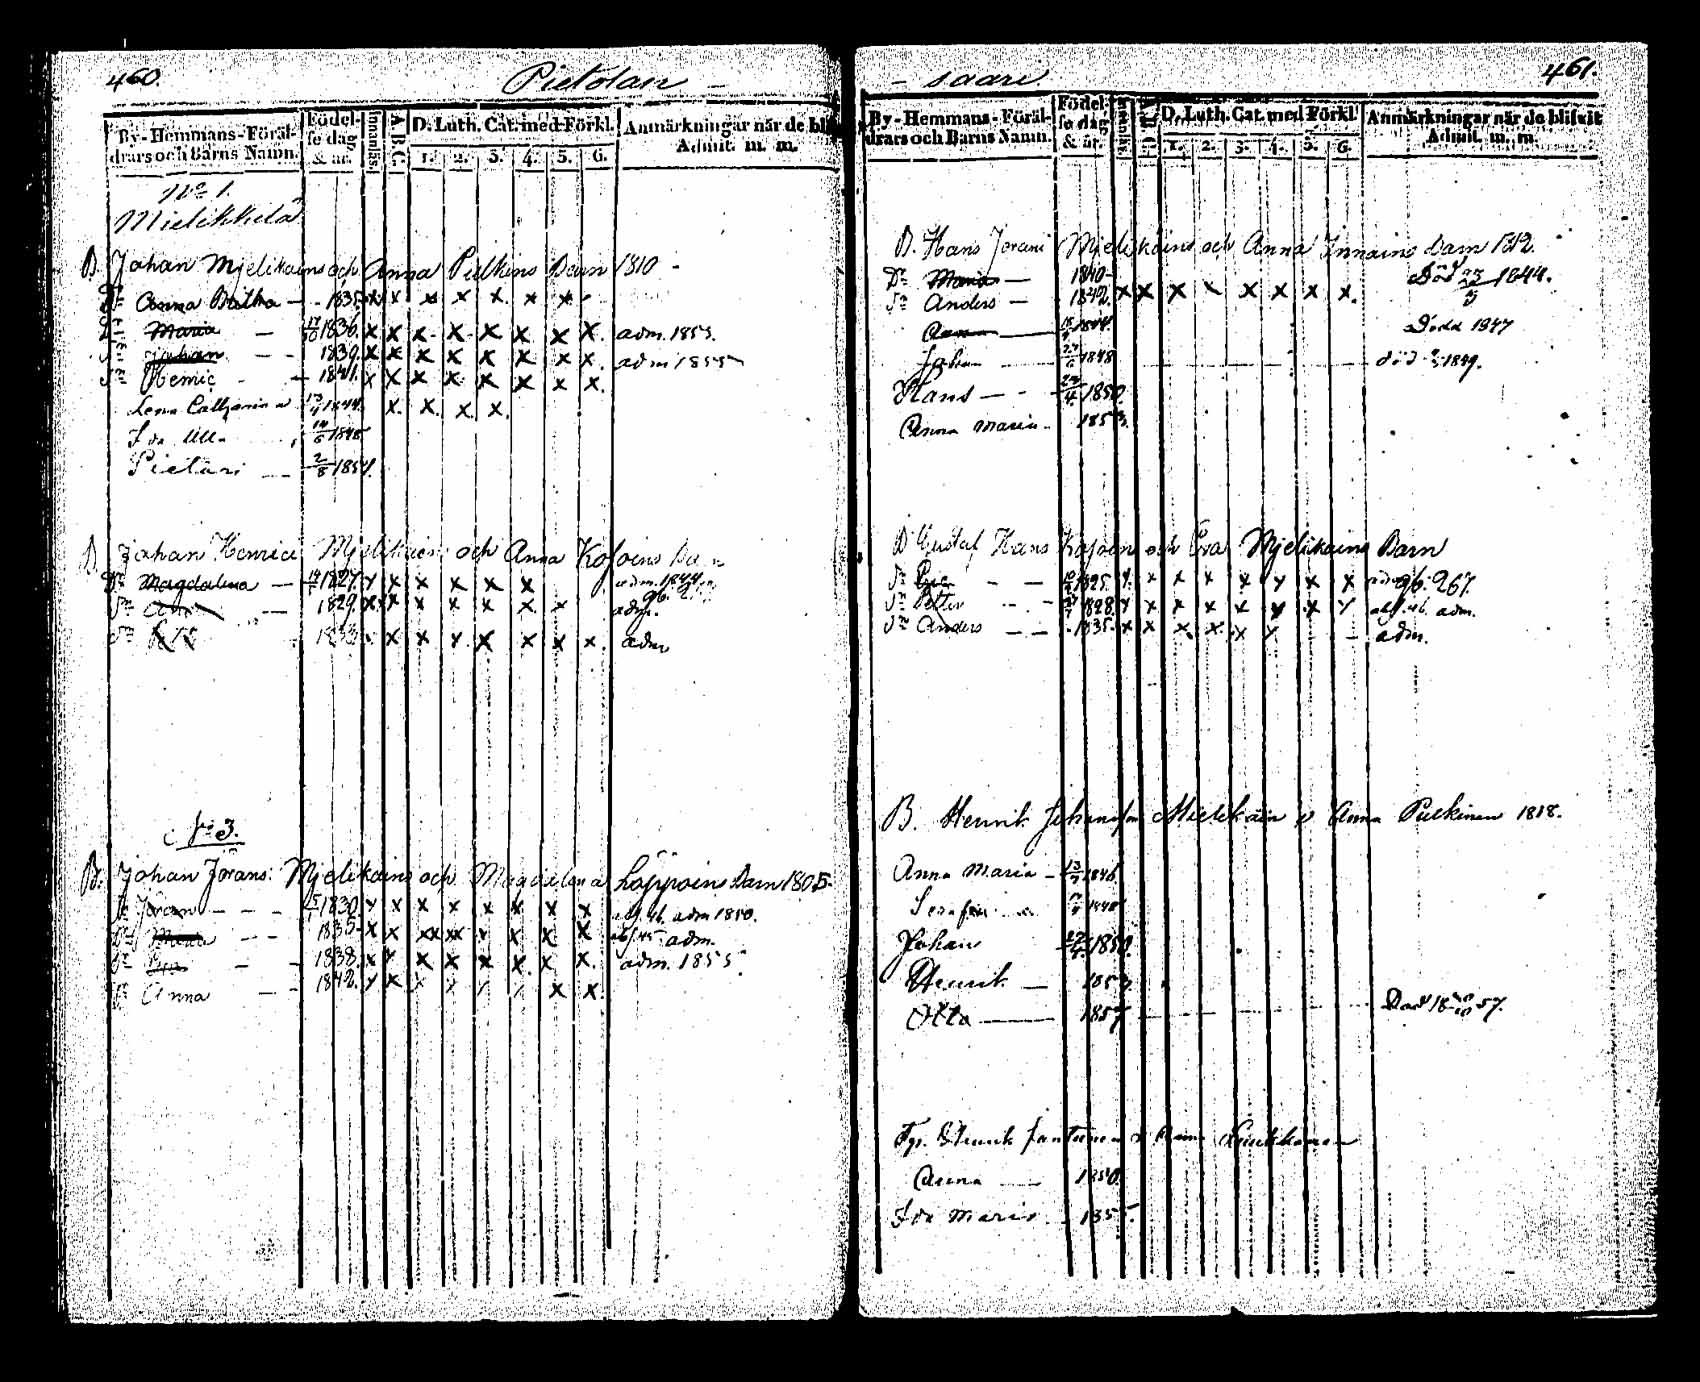 460.
Pietolan -
By-Hemmans-Föräl-
drars och Barns Namn.
Födel-
se dag
& år.
Innanläs.
A.B.C.
D. Luth. Cat. med Förkl.
1. 2. 3. 4. 5. 6.
Anmärkningar när de bli
Admit. m. m.
No 1.
Mielikkilä
B. Johan Mjelikains och Anna Pulkins Barn 1810 -
Dr Anna Britha - - 1835 x x x x x x x
Dr Maria - 17/10 1836 x x x x x x x x adm. 1853.
Sn Johan - - 1839 x x x x x x x x adm 1855
Sn Henric - - 1841. x x x x x x x x
Lena Catharina 13/4 1844 x. x. x x.
Ida Ulla 14/6 1848
Pietari - 2/8 1854.
B. Johan Henrici Mjelikain och Anna Kosoins Barn
Dr Magdalena - 1827. x x x x x x adm. 1844
1829. x x x x x x x adm.
1833 x x x x x x x adm
No 3.
B. Johan Jörans: Mjelikains och Magdalena Loppoins Barn 1805-
Sn Jöran - - - 1830. x x x x x x x x abs. 46. adm 1850.
Dr Maria - - 1835. x x xx xx x x x x abs. 45 adm.
Dr Eva - - 1838. x x x x x x x x. adm. 1855
Dr Anna - - 1842. x x x x x x x.
461.
- saari
By-Hemmans-Föräl-
drars och Barns Namn.
Födel-
se dag
& år.
D. Luth. Cat. med Förkl.
1. 2. 3. 4. 5. 6.
Anmärkningar när de blifvit
Admit. m. m.
B. Hans Jörans Mjelikains och Anna Innains barn 1812.
Dr Maria - 1840- Död 23/5 1844.
Sn Anders - 1842. x x x x x x x x.
Anna 1844 Död 1847
Johan 1848 död 1849.
Hans - - 29/4 1850.
Anna Maria - 1853.
B. Gustaf Hans Kosoin och Eva Mjelikains Barn
Dr Eva - - 1825. x x x x x x x x 967.
Sn Petter - - 1828. x x x x x x x x abs. 46. adm.
Sn Anders - - 1835. x x x. x. x x - adm.
B. Henrik Johansson Mielikäin o Anna Pulkinen 1818.
Anna Maria - 13/7 1846
Serafia 1848
Johan 1850.
Henrik - 1853
Otto - 1857 Död 18 57.
Henrik Jantunen o Anna
Anna - 1850
Ida Maria - 1855.